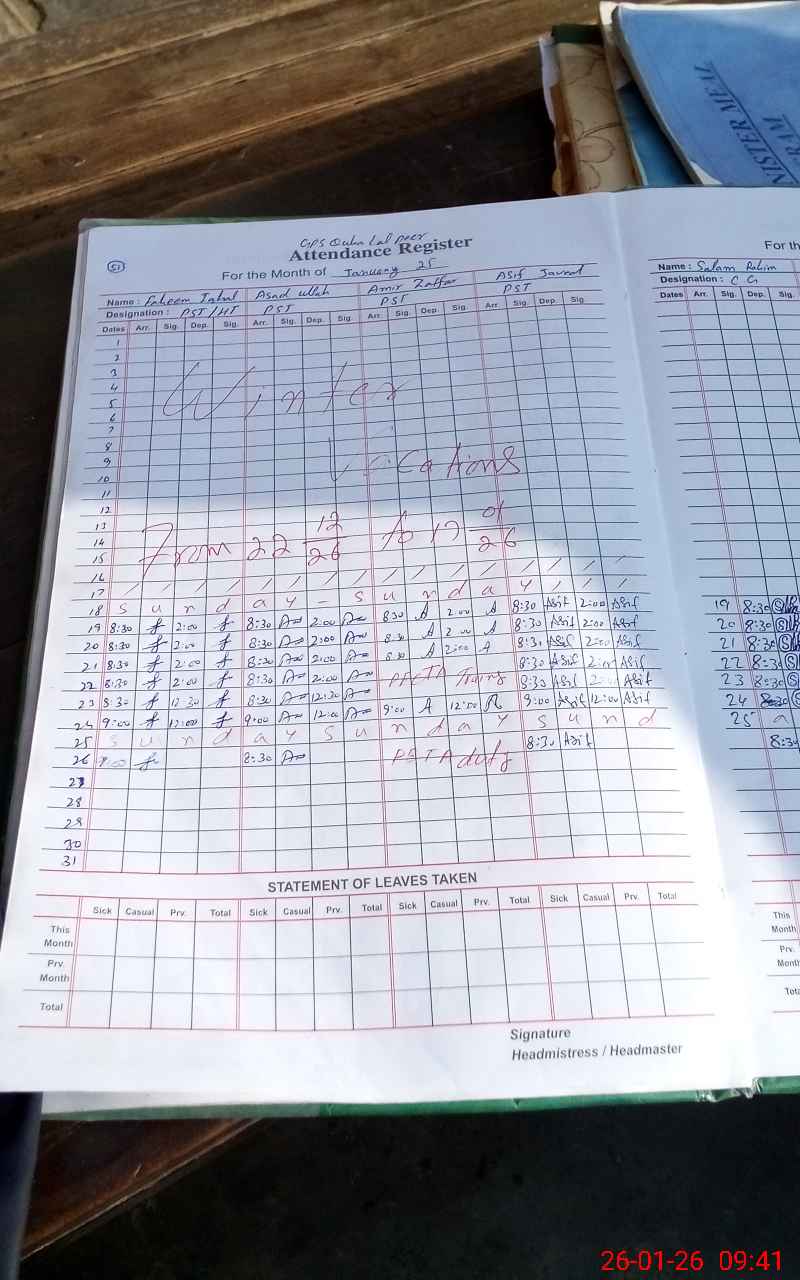 NISTER ME
RAM
51
GPS
Attendance Register
For the Month of January 25
Name : Faheem Iqbal Asad ullah Amir Zaffar Asif Javed
Designation : PST/HT PST PST PST
Dates Arr. Sig. Dep. Sig. Arr. Sig. Dep. Sig. Arr. Sig. Dep. Sig. Arr. Sig. Dep. Sig.
1
2
3
4
Winter
5
6
7
8
9
Vications
10
11
12
13
14
From 22 12/26 to 17 01/26
15
16
17
18 Sunday - Sunday
19 8:30 2:00 8:30 2:00 8:30 A 2:00 A 8:30 Asif 2:00 Asif
20 8:30 2:00 8:30 2:00 8:30 A 2:00 A 8:30 Asif 2:00 Asif
21 8:30 2:00 8:30 2:00 8:30 A 2:00 A 8:30 Asif 2:00 Asif
22 8:30 2:00 8:30 2:00 8:30 Asif 2:00 Asif
23 8:30 12:30 8:30 12:30 8:30 Asif Asif
24 9:00 12:00 9:00 12:00 9:00 A 12:00 A 9:00 Asif 12:00 Asif
25 Sunday Sunday Sund
26 8:30 PSTA duty 8:30 Asif
27
28
29
30
31
STATEMENT OF LEAVES TAKEN
Sick Casual Prv. Total Sick Casual Prv. Total Sick Casual Prv. Total Sick Casual Prv. Total
This Month
Prv. Month
Total
Signature
Headmistress / Headmaster
For th
Name : Salam Rahim
Designation : C G
Dates Arr. Sig. Dep. Sig.
19 8:30
20 8:30
21 8:30
22 8:30
23 8:30
24 8:30
25 a
8:30
This Month
Prv. Month
Tota
26-01-26 09:41